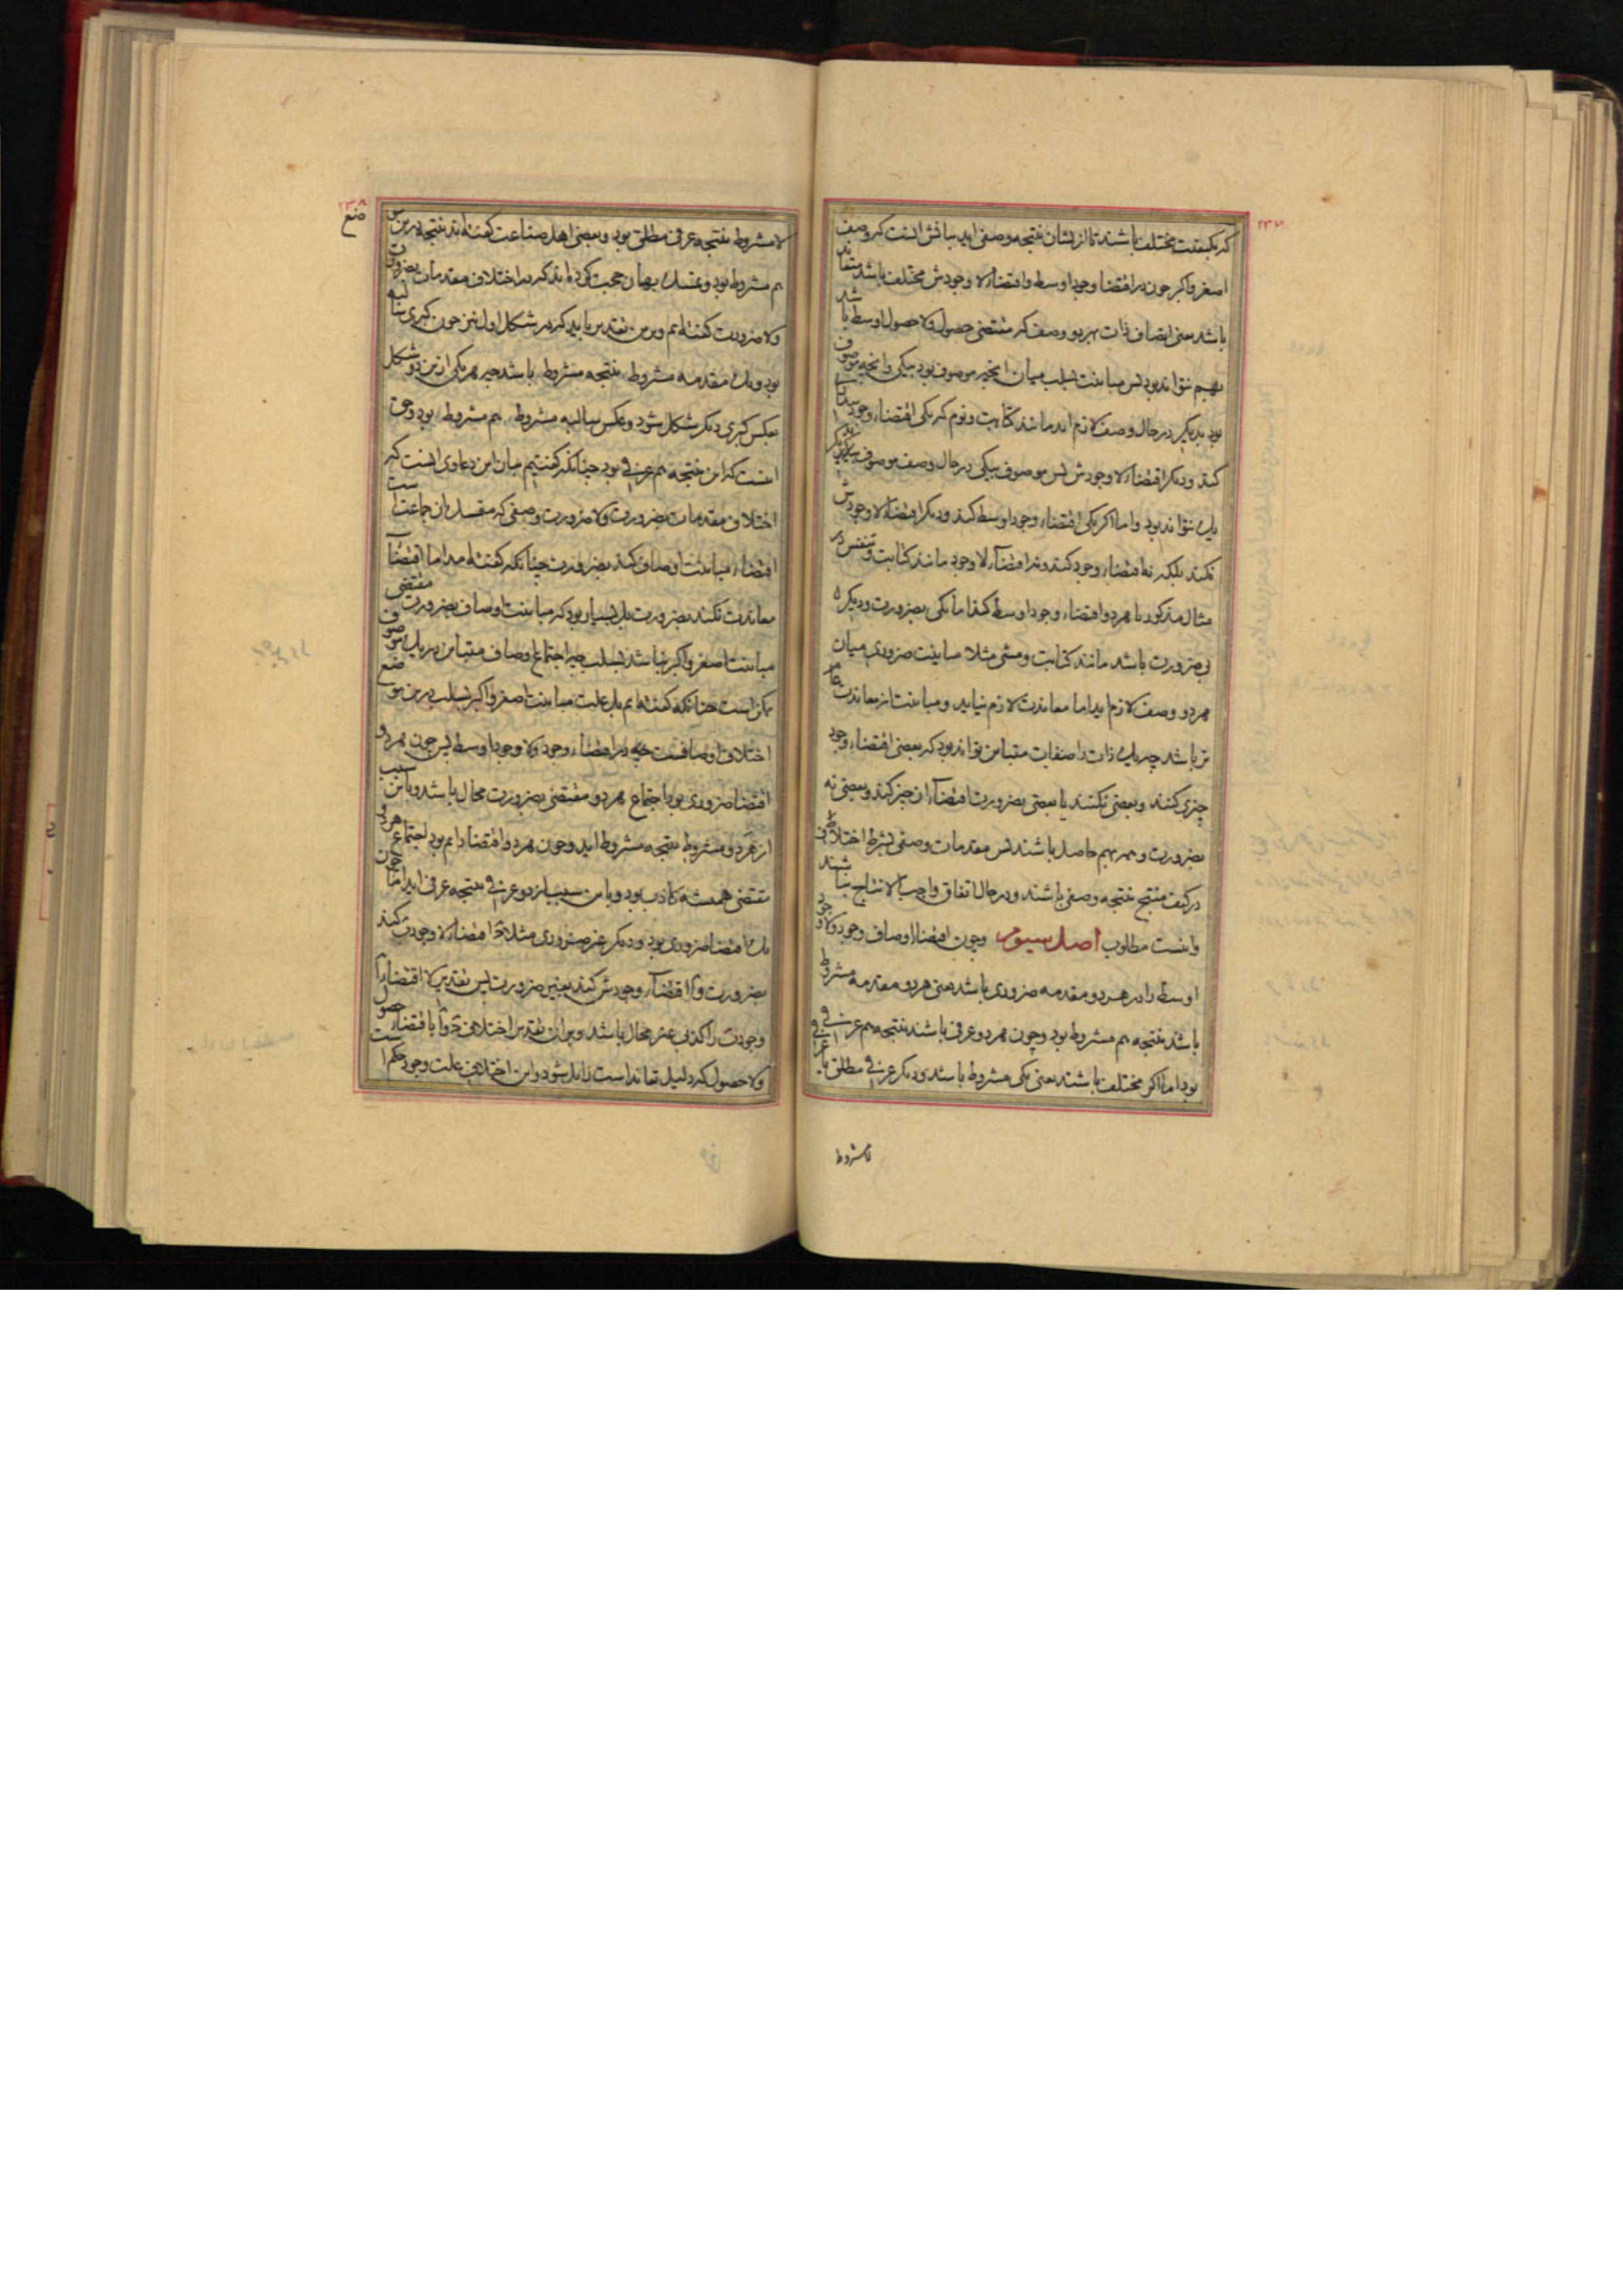 ۲۳۷
که بکیفیت مختلف باشند تا ازیشان نتیجه وصفی اید بیانش انست که وصف
اصغر و اکبر چون در اقتضاء وجود اوسط و اقتضاء لا وجودش مختلف باشد متعاند
باشد یعنی اتصاف ذات بهر دو وصف که مقتضی حصول و لا حصول اوسط باشد
بهم نتواند بود پس مباینت بسلب میان انچیز موصوف بود بیکی و انچه موصوف
بود بدیگر در حال وصف لازم اید مانند کتابت و نوم که یکی اقتضاء وجود
کند و دیگر اقتضاء لا وجودش پس موصوف بیکی در حال وصف موصوف بدیگر
یک نتواند بود و اما اگر یکی اقتضاء وجود اوسط کند و دیگر اقتضاء لا وجودش
نکند بلکه نه اقتضاء وجود کند و نه اقتضاء لا وجود مانند کتابت و تنفس در
مثال مذکور یا هر دو اقتضاء وجود اوسط کند اما یکی بضرورت و دیگر
بی ضرورت باشد مانند کتابت و مشی مثلا مباینت ضروری میان
هر دو وصف لازم اید اما معاندت لازم نیاید و مباینت از معاندت عام
تر باشد چه یک ذات را صفات متباین تواند بود که بعضی اقتضاء وجود
چیزی کنند و بعضی نکنند یا بعضی بضرورت اقتضاء ان چیز کند و بعضی نه
بضرورت و همه بهم حاصل باشند پس مقدمات وصفی بشرط اختلاف
در کیف منتج نتیجه وصفی باشند و در حال اتفاق واجب الانتاج نباشند
و اینست مطلوب اصل سیوم و چون اقتضاء اوصاف وجود و لا وجود
اوسط را در هر دو مقدمه ضروری باشد یعنی هر دو مقدمه مشروط
باشد نتیجه هم مشروط بود و چون هر دو عرفی باشند نتیجه هم عرفی
بود اما اگر مختلف باشند یعنی یکی مشروط باشد و دیگر عرفی مطلق یا عرفی
لامشروط
۲۳۸
لا مشروط نتیجه عرفی مطلق بود و بعضی اهل صناعت گفته‌اند نتیجه درین موضع
هم مشروط بود و تمسک بهمان حجت کرده‌اند که در اختلاف مقدمات بضرورت
و لا ضرورت گفته‌ایم و برین تقدیر باید که در شکل اول نیز چون کبری سالبه
بود و یک مقدمه مشروط نتیجه مشروط باشد چه هر یکی ازین دو شکل
بعکس کبری دیگر شکل شود و عکس سالبه مشروط هم مشروط بود و حق
انست که این نتیجه هم عرفی بود چنانکه گفتیم بیان این دعاوی انست که
اختلاف مقدمات بضرورت و لا ضرورت وصفی که متمسک ان جماعت است
اقتضاء مباینت اوصاف کند بضرورت چنانکه گفته امد اما اقتضاء
معاندت نکند بضرورت بل بسیار بود که مباینت اوصاف بضرورت مقتضی
مباینت اصغر و اکبر نباشد بسلب چه اجتماع اوصاف متباین در یک موصوف
ممکن است چنانکه گفته‌ایم بل علت مباینت اصغر و اکبر بسلب درین موضع
اختلاف اوصافست در اقتضاء وجود و لا وجود اوسط پس چون هر دو
اقتضا ضروری بود اجتماع هر دو مقتضی بضرورت محال باشد و باین سبب
از هر دو مشروط نتیجه مشروط اید و چون هر دو اقتضا دایم بود اجتماع هر دو
مقتضی همیشه کاذب بود و باین سبب از دو عرفی نتیجه عرفی اید اما چون
یک اقتضا ضروری بود و دیگر غیر ضروری مثلا ج اقتضاء لا وجود ب کند
بضرورت و ا اقتضاء وجودش کند بغیر ضرورت پس تقدیر لا اقتضاء ا
وجود ب را کذبی غیر محال باشد و بران تقدیر اختلاف ج و ا باقتضاء حصول
و لا حصول که دلیل تعاند است زایل شود و این اختلاف علت وجود حکم است